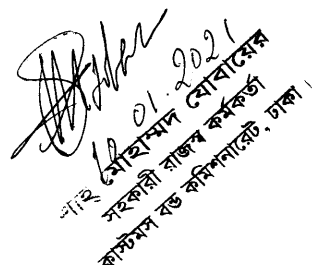 18.01.2021
শাহ মোহাম্মদ যোবায়ের
সহকারী রাজস্ব কর্মকর্তা
কাস্টমস বন্ড কমিশনারেট, ঢাকা।